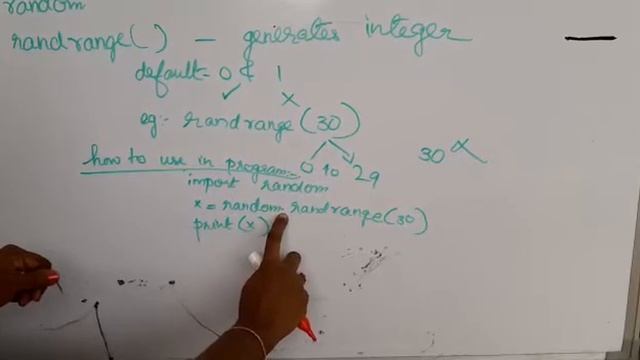 random
randrange() - generates integer
default - 0 & 1
eg:- randrange (30)
0 to 29
30
how to use in program:-
import random
x = random.randrange(30)
print(x)